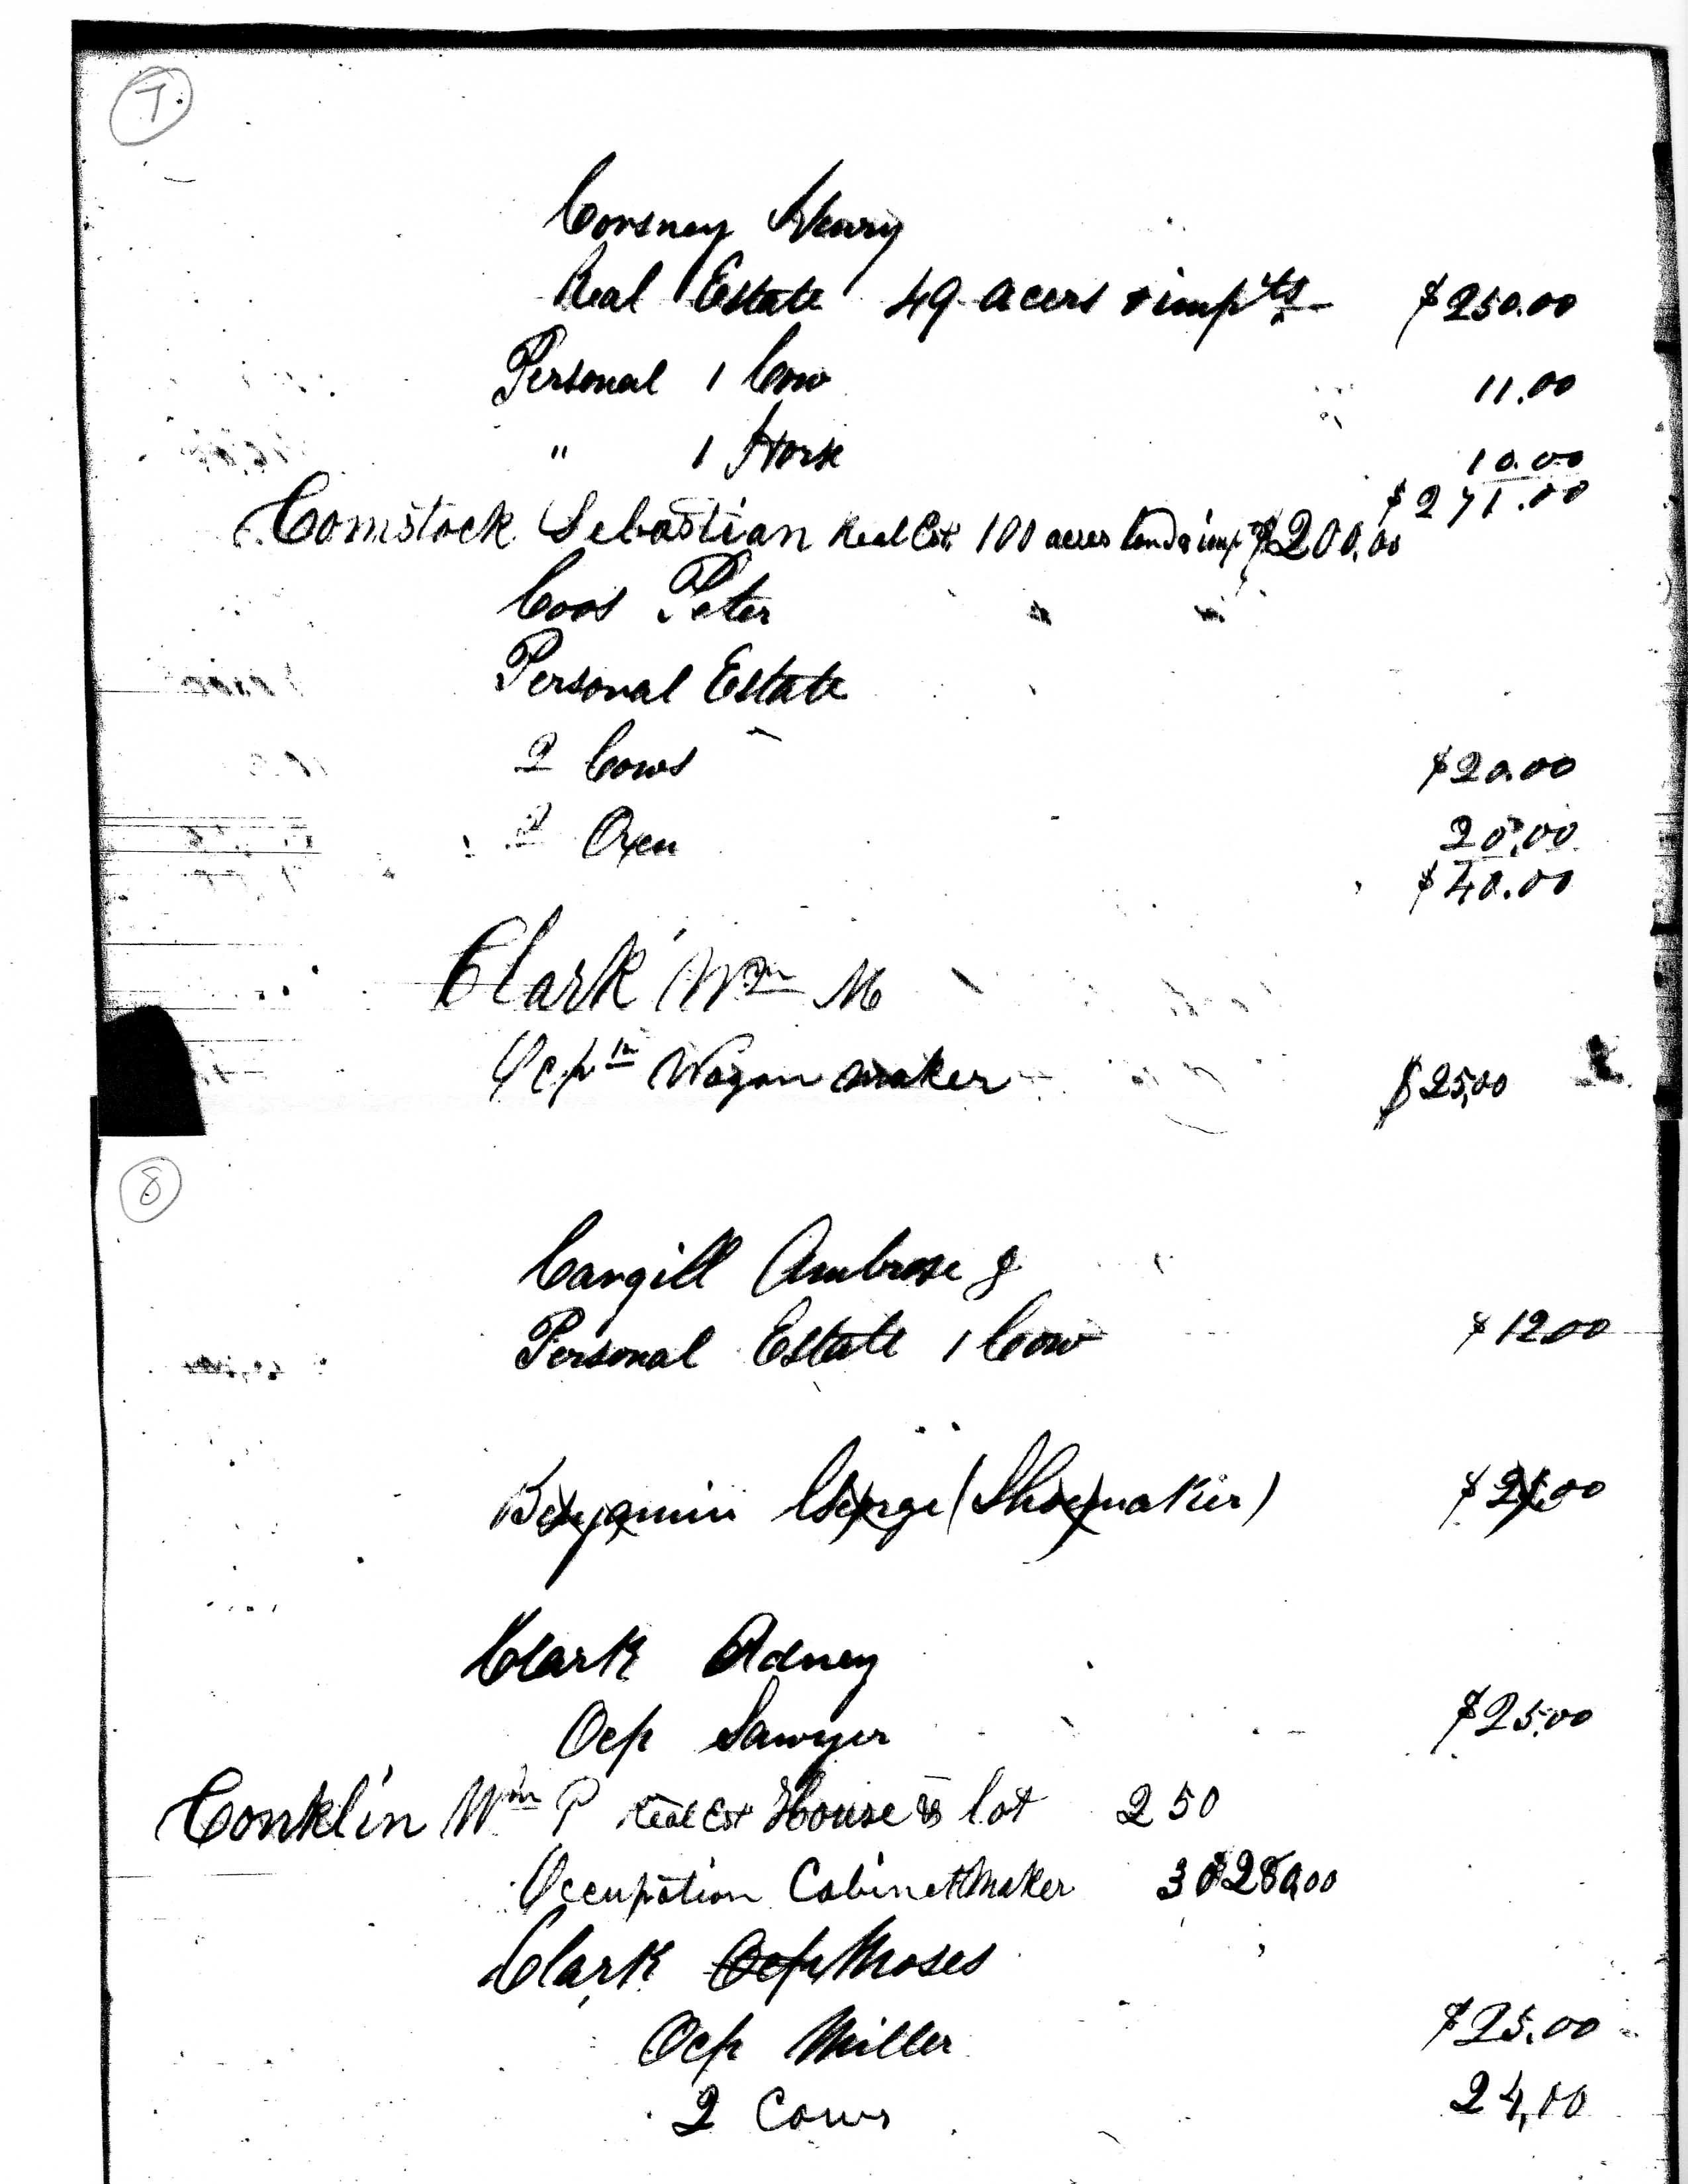 7.
Corsney Henry
Real Estate 49 acers & imp ts $250.00
Personal 1 Cow 11.00
" 1 Horse 10.00
$271.00
Comstock Sebastian Real Est. 100 acres land & impts $200.00
Coos Peter
Personal Estate
2 Cows $20.00
2 Oxen 20.00
$40.00
Clark Wm M
Ocpn Wagon maker $25,00
8
Cargill Ambrose J
Personal Estate 1 Cow $12.00
Benjamin George (Shoemaker) $25.00
Clark Adney
Ocp Sawyer $25.00
Conklin Wm P Real Est House & lot 250
Occupation Cabinet Maker 30 $280,00
Clark Ocp Moses
Ocp Miller $25.00
2 Cows 24,00